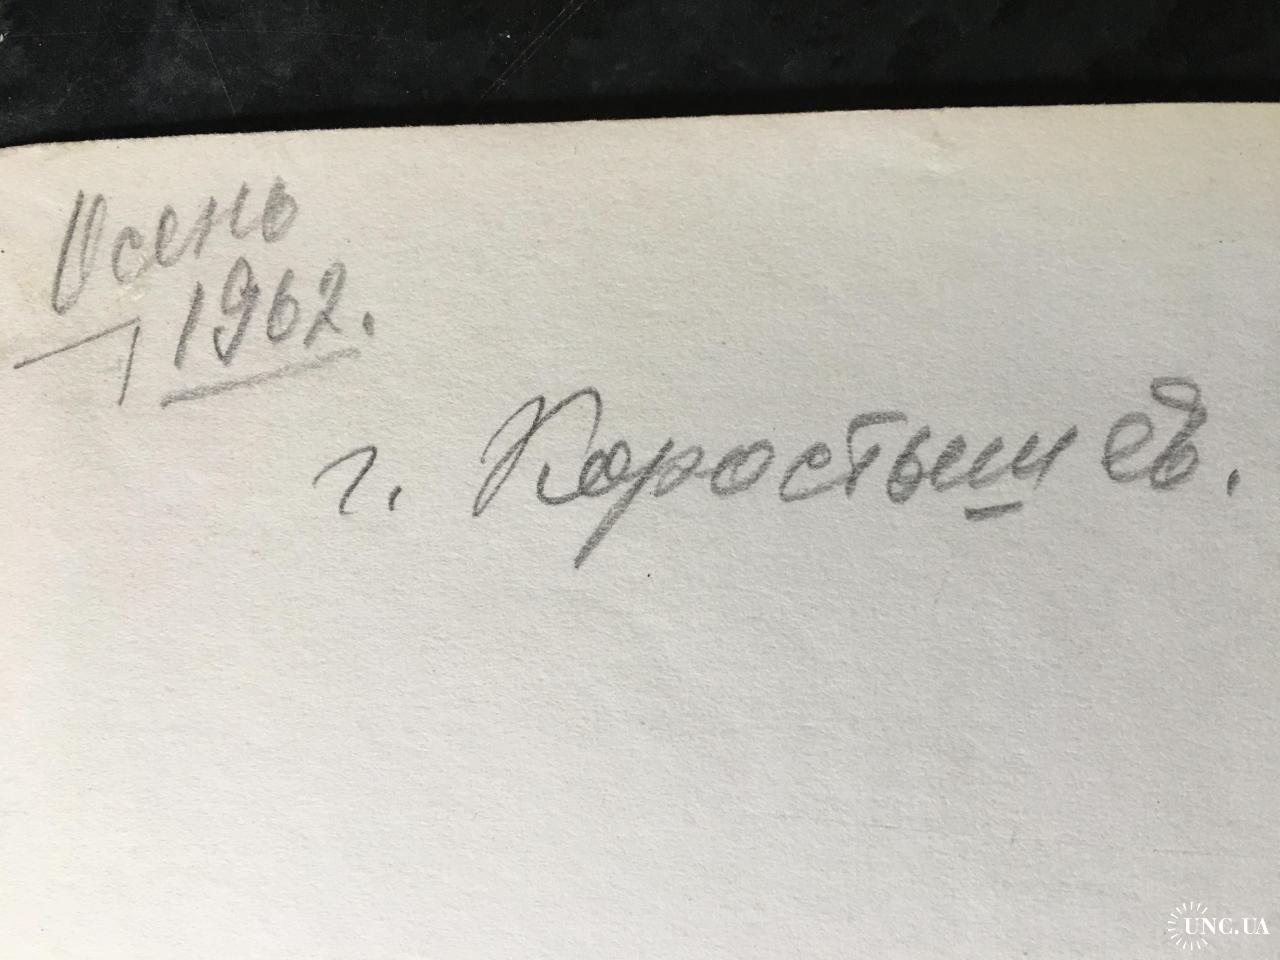 Осень
1962.
г. Коростышев.
UNC.UA